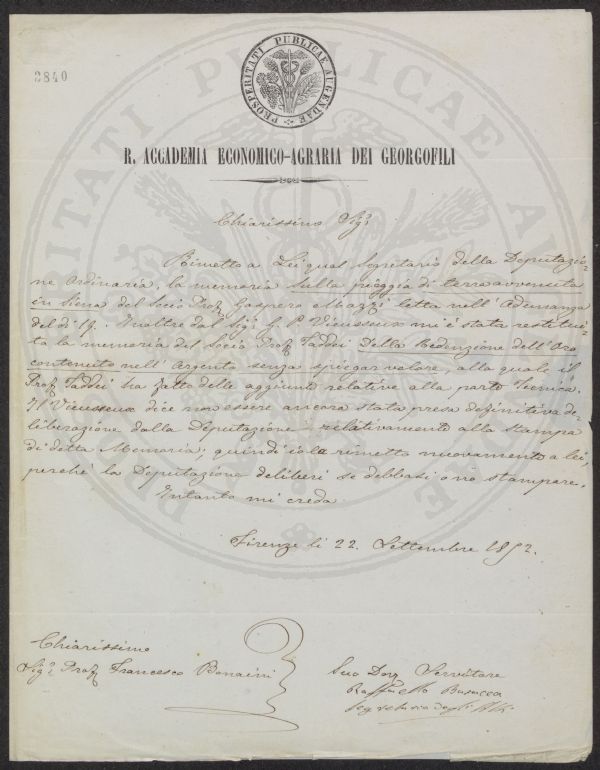 2840
PROSPERITATI PUBLICAE AUGENDAE
R. ACCADEMIA ECONOMICO-AGRARIA DEI GEORGOFILI
Chiarissimo Sigr
Rimetto a Lei qual Segretario della Deputazio-
ne Ordinaria, la memoria sulla pioggia di terra avvenuta
in Siena del Socio Prof Gaspero Mazzi letta nell'Adunanza
del dì 19. Inoltre dal Sigr G. P. Vieusseux mi è stata restitui-
ta la memoria del Socio Prof Taddei Della Reduzione dell'Oro
contenuto nell'Argento senza spiegar valore, alla quale il
Prof Taddei ha fatto delle aggiunte relative alla parte Tecnica.
Il Vieusseux dice non essere ancora stata presa definitiva de-
liberazione dalla Deputazione relativamente alla stampa
di detta Memoria; quindi io la rimetto nuovamente a lei,
perchè la Deputazione deliberi se debbasi o nò stampare.
Intanto mi creda
Firenze li 22. Settembre 1852.
Chiarissimo
Sigr Prof Francesco Bonaini
Suo Dev Servitore
Raffaello Busacca
Segretario degli Atti